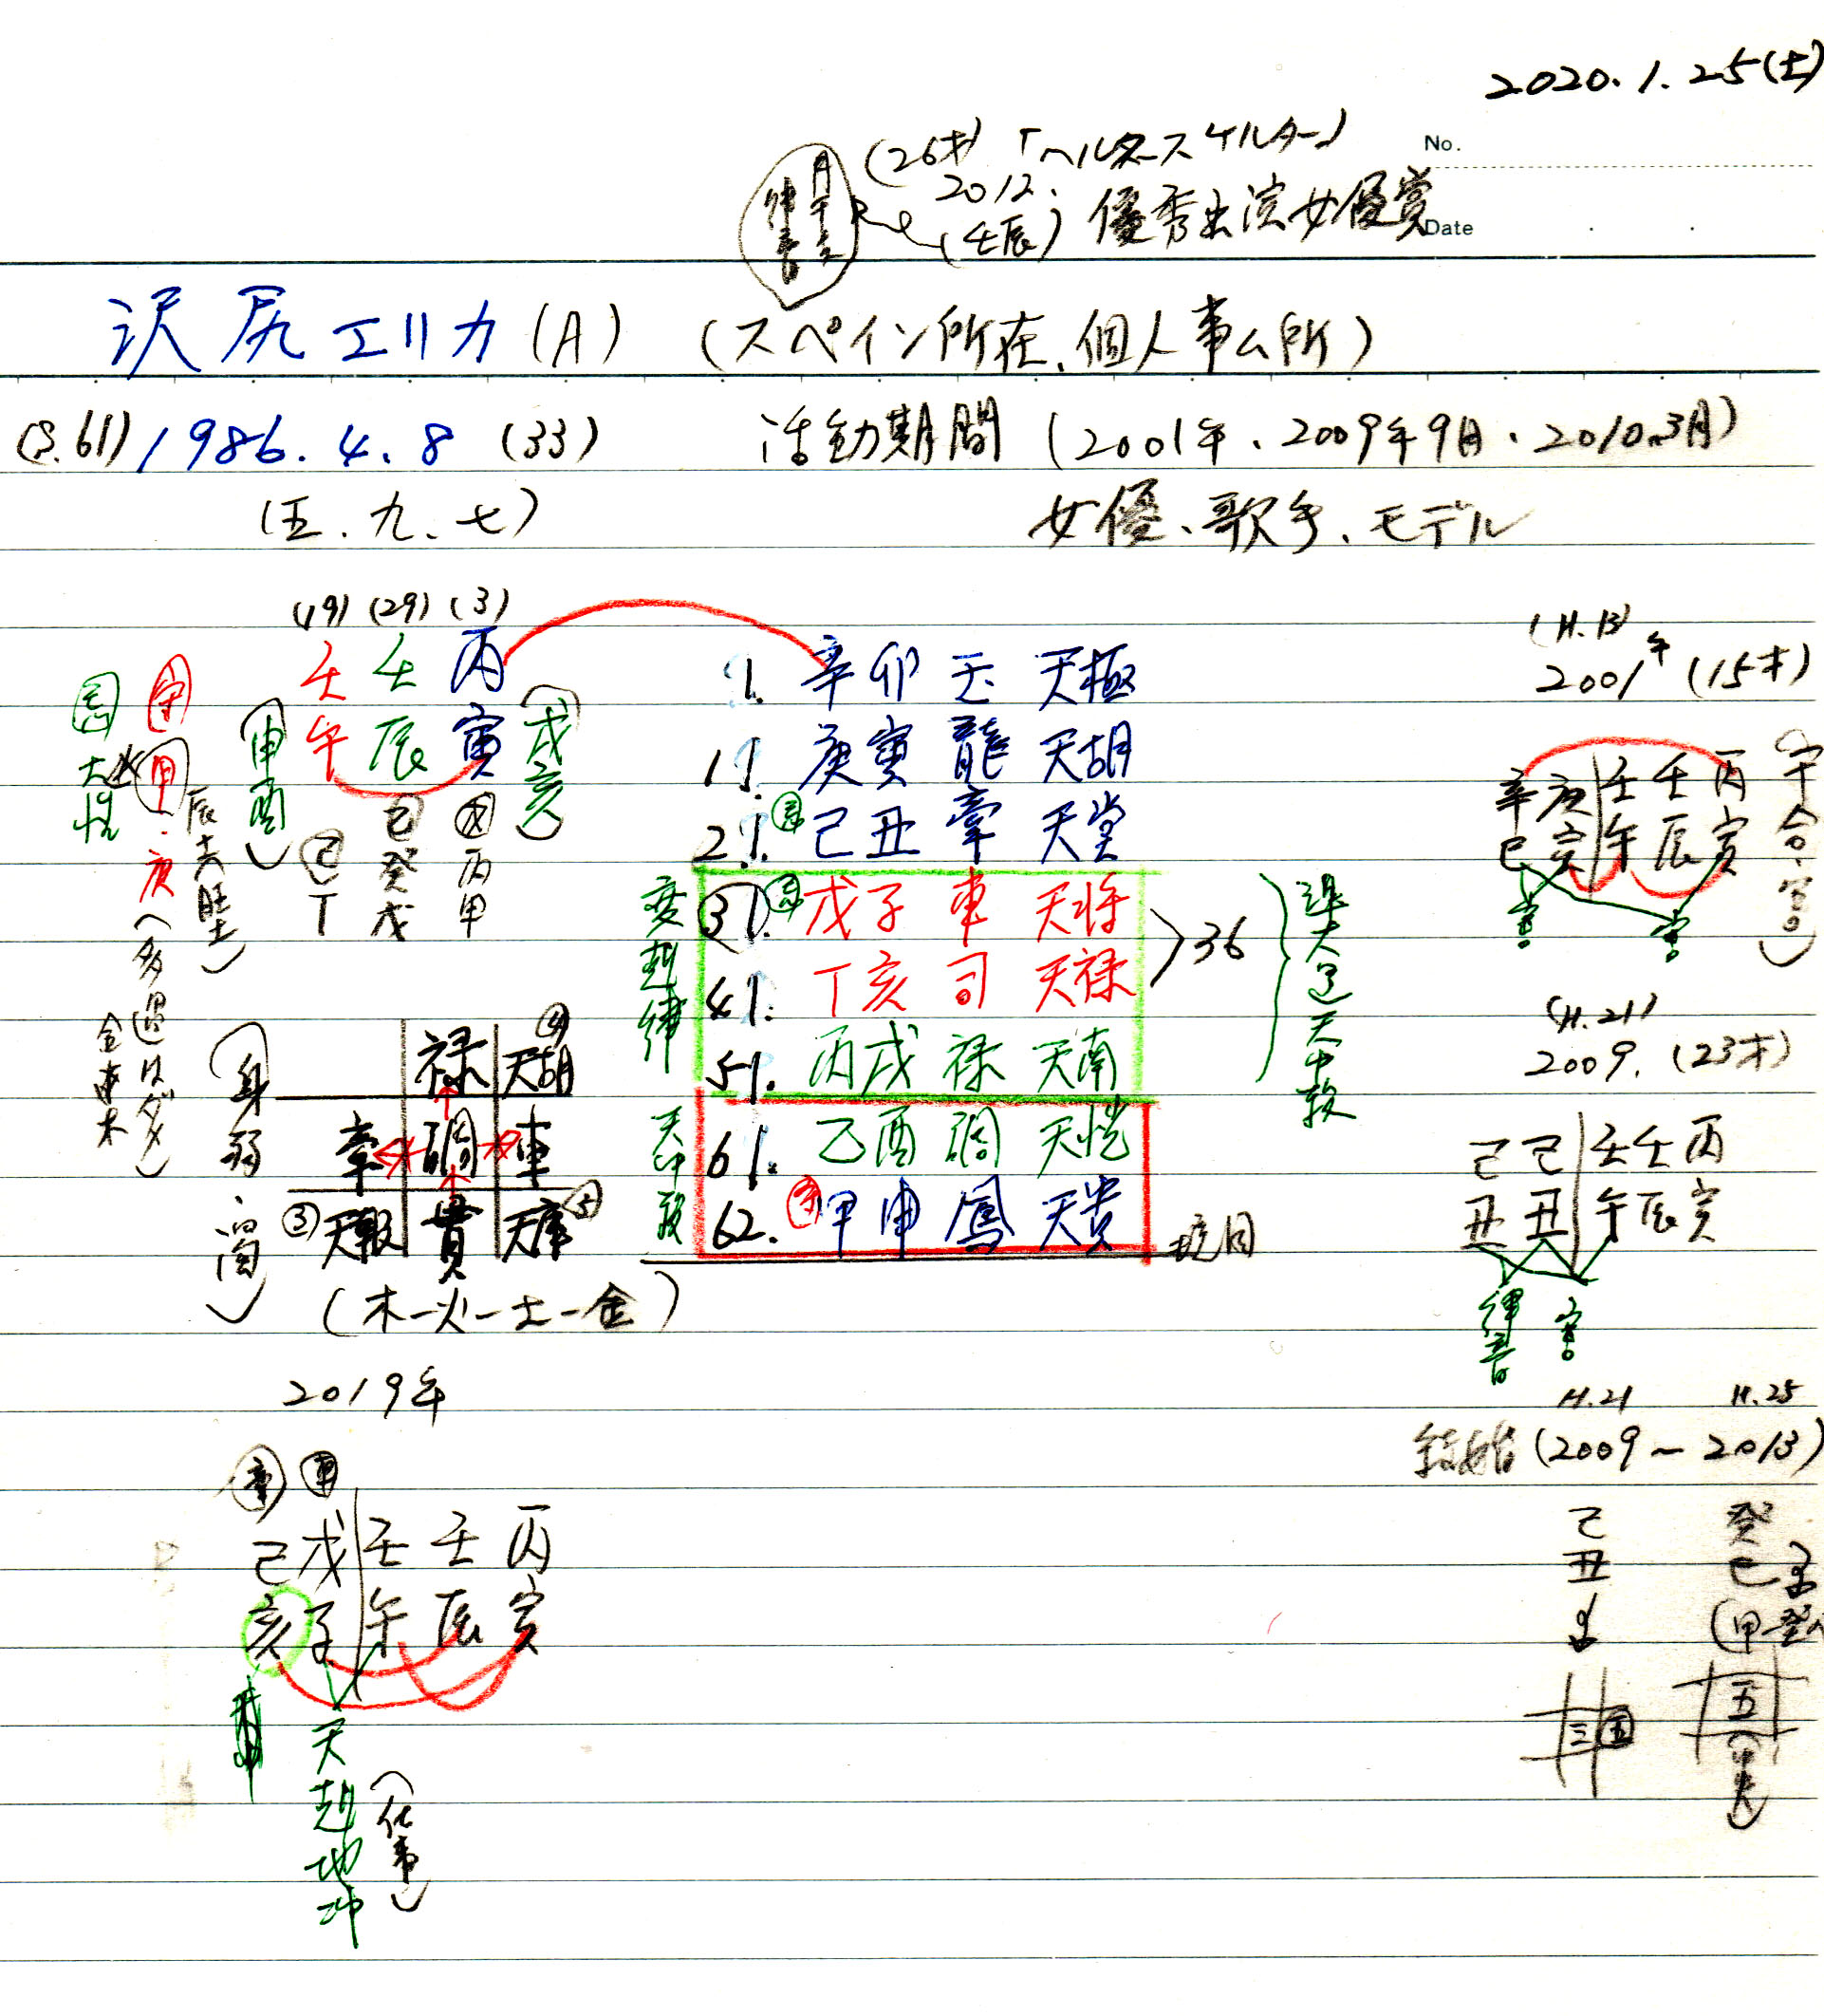 2020.1.25(土)
No.
(26才)「ヘルタースケルター」
2012.
(壬辰) 優秀主演女優賞
Date
沢尻エリカ(A) (スペイン所在、個人事ム所)
(S.61) 1986.4.8 (33) 活動期間 (2001年、2009年9月、2010.3月)
(五.九.七) 女優、歌手、モデル
(19) (29) (3)
壬 壬 丙 (戌亥)
午 辰 寅
(申酉)
己 癸 戊
己 丁
戊 丙 甲
守 甲.庚
忌
身弱
1. 辛卯 玉 天極
11. 庚寅 龍 天胡
21. 忌 己丑 牽 天堂
31. 忌 戊子 車 天将
41. 丁亥 司 天禄
51. 丙戌 禄 天南
61. 乙酉 調 天恍
62. 守 甲申 鳳 天貴
変剋律
天中殺
36
現月
禄 天胡 ④
牽 調 車
③ 天報 貫 天庫 ⑤
(木ー火ー土ー金)
(H.13)
2001年 (15才)
辛 庚 壬 壬 丙
巳 寅 午 辰 寅
害 害
(H.21)
2009. (23才)
己 己 壬 壬 丙
丑 丑 午 辰 寅
律音 害
H.21 H.25
結婚 (2009~2013)
己 癸
丑 巳
三 五
五
2019年
牽 車
己 戊 壬 壬 丙
亥 子 午 辰 寅
天剋地冲
(仕事)